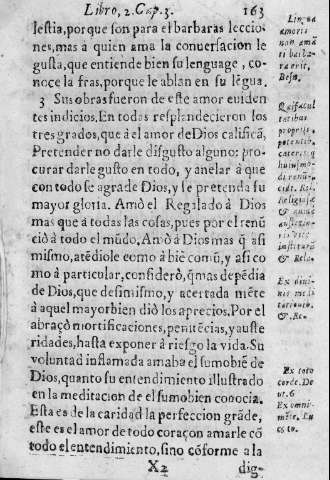 Libro, 2. Cap. 3. 163
lestia, porque son para el barbaras leccio-
nes, mas a quien ama la conuersacion le
gusta, que entiende bien su lenguage, co-
noce la fras, porque le ablan en su lẽgua.
3 Sus obras fueron de este amor euiden
tes indicios. En todas resplandecieron los
tres grados, que à el amor de Dios califícã,
Pretender no darle disgusto alguno: pro-
curar darle gusto en todo, y anelar à que
con todo se agrade Dios, y se pretenda su
mayor gloria. Amò el Regalado à Dios
mas que à todas las cosas, pues por el renũ
ciò à todo el mũdo. Amò à Dios mas q̃ asi
mismo, atẽdiole como à biẽ comũ, y asi co
mo à particular, considerò, q̃ mas depẽdia
de Dios, que desimismo, y acertada mẽte
à aquel mayor bien diò los aprecios. Por el
abraçò mortificaciones, penitẽcias, y auste
ridades, hasta exponer à riesgo la vida. Su
voluntad inflamada amaba el sumobiẽ de
Dios, quanto su entendimiento illustrado
en la meditacion de el sumobien conocia.
Esta es de la caridad la perfeccion grãde,
este es el amor de todo coraçon amarle cõ
todo el entendimiento, sino cõforme a la
X2 dig-
Lingua
amoris
non amã
ti barba-
ra erit.
Bern.
proprijs
Religiosæ
& Rela.
& Re.
Ex toto
corde. De
ut. 6
Ex omni
mẽte. Lu
c. 10.